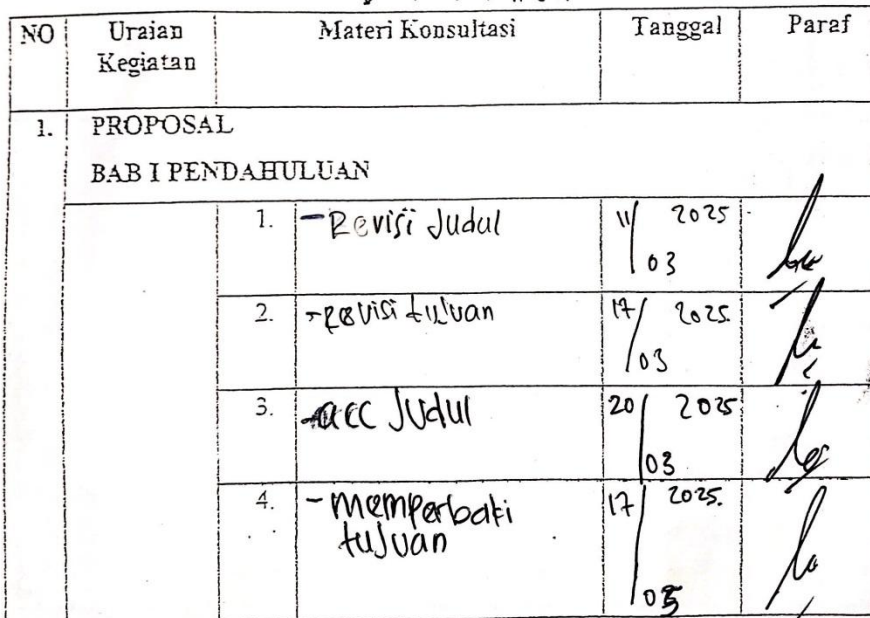 NO Uraian Kegiatan Materi Konsultasi Tanggal Paraf
1. PROPOSAL
BAB I PENDAHULUAN
1. - Revisi Judul 11/03 2025
2. - Revisi tujuan 17/03 2025.
3. - acc Judul 20/03 2025
4. - memperbaiki tujuan 17/05 2025.